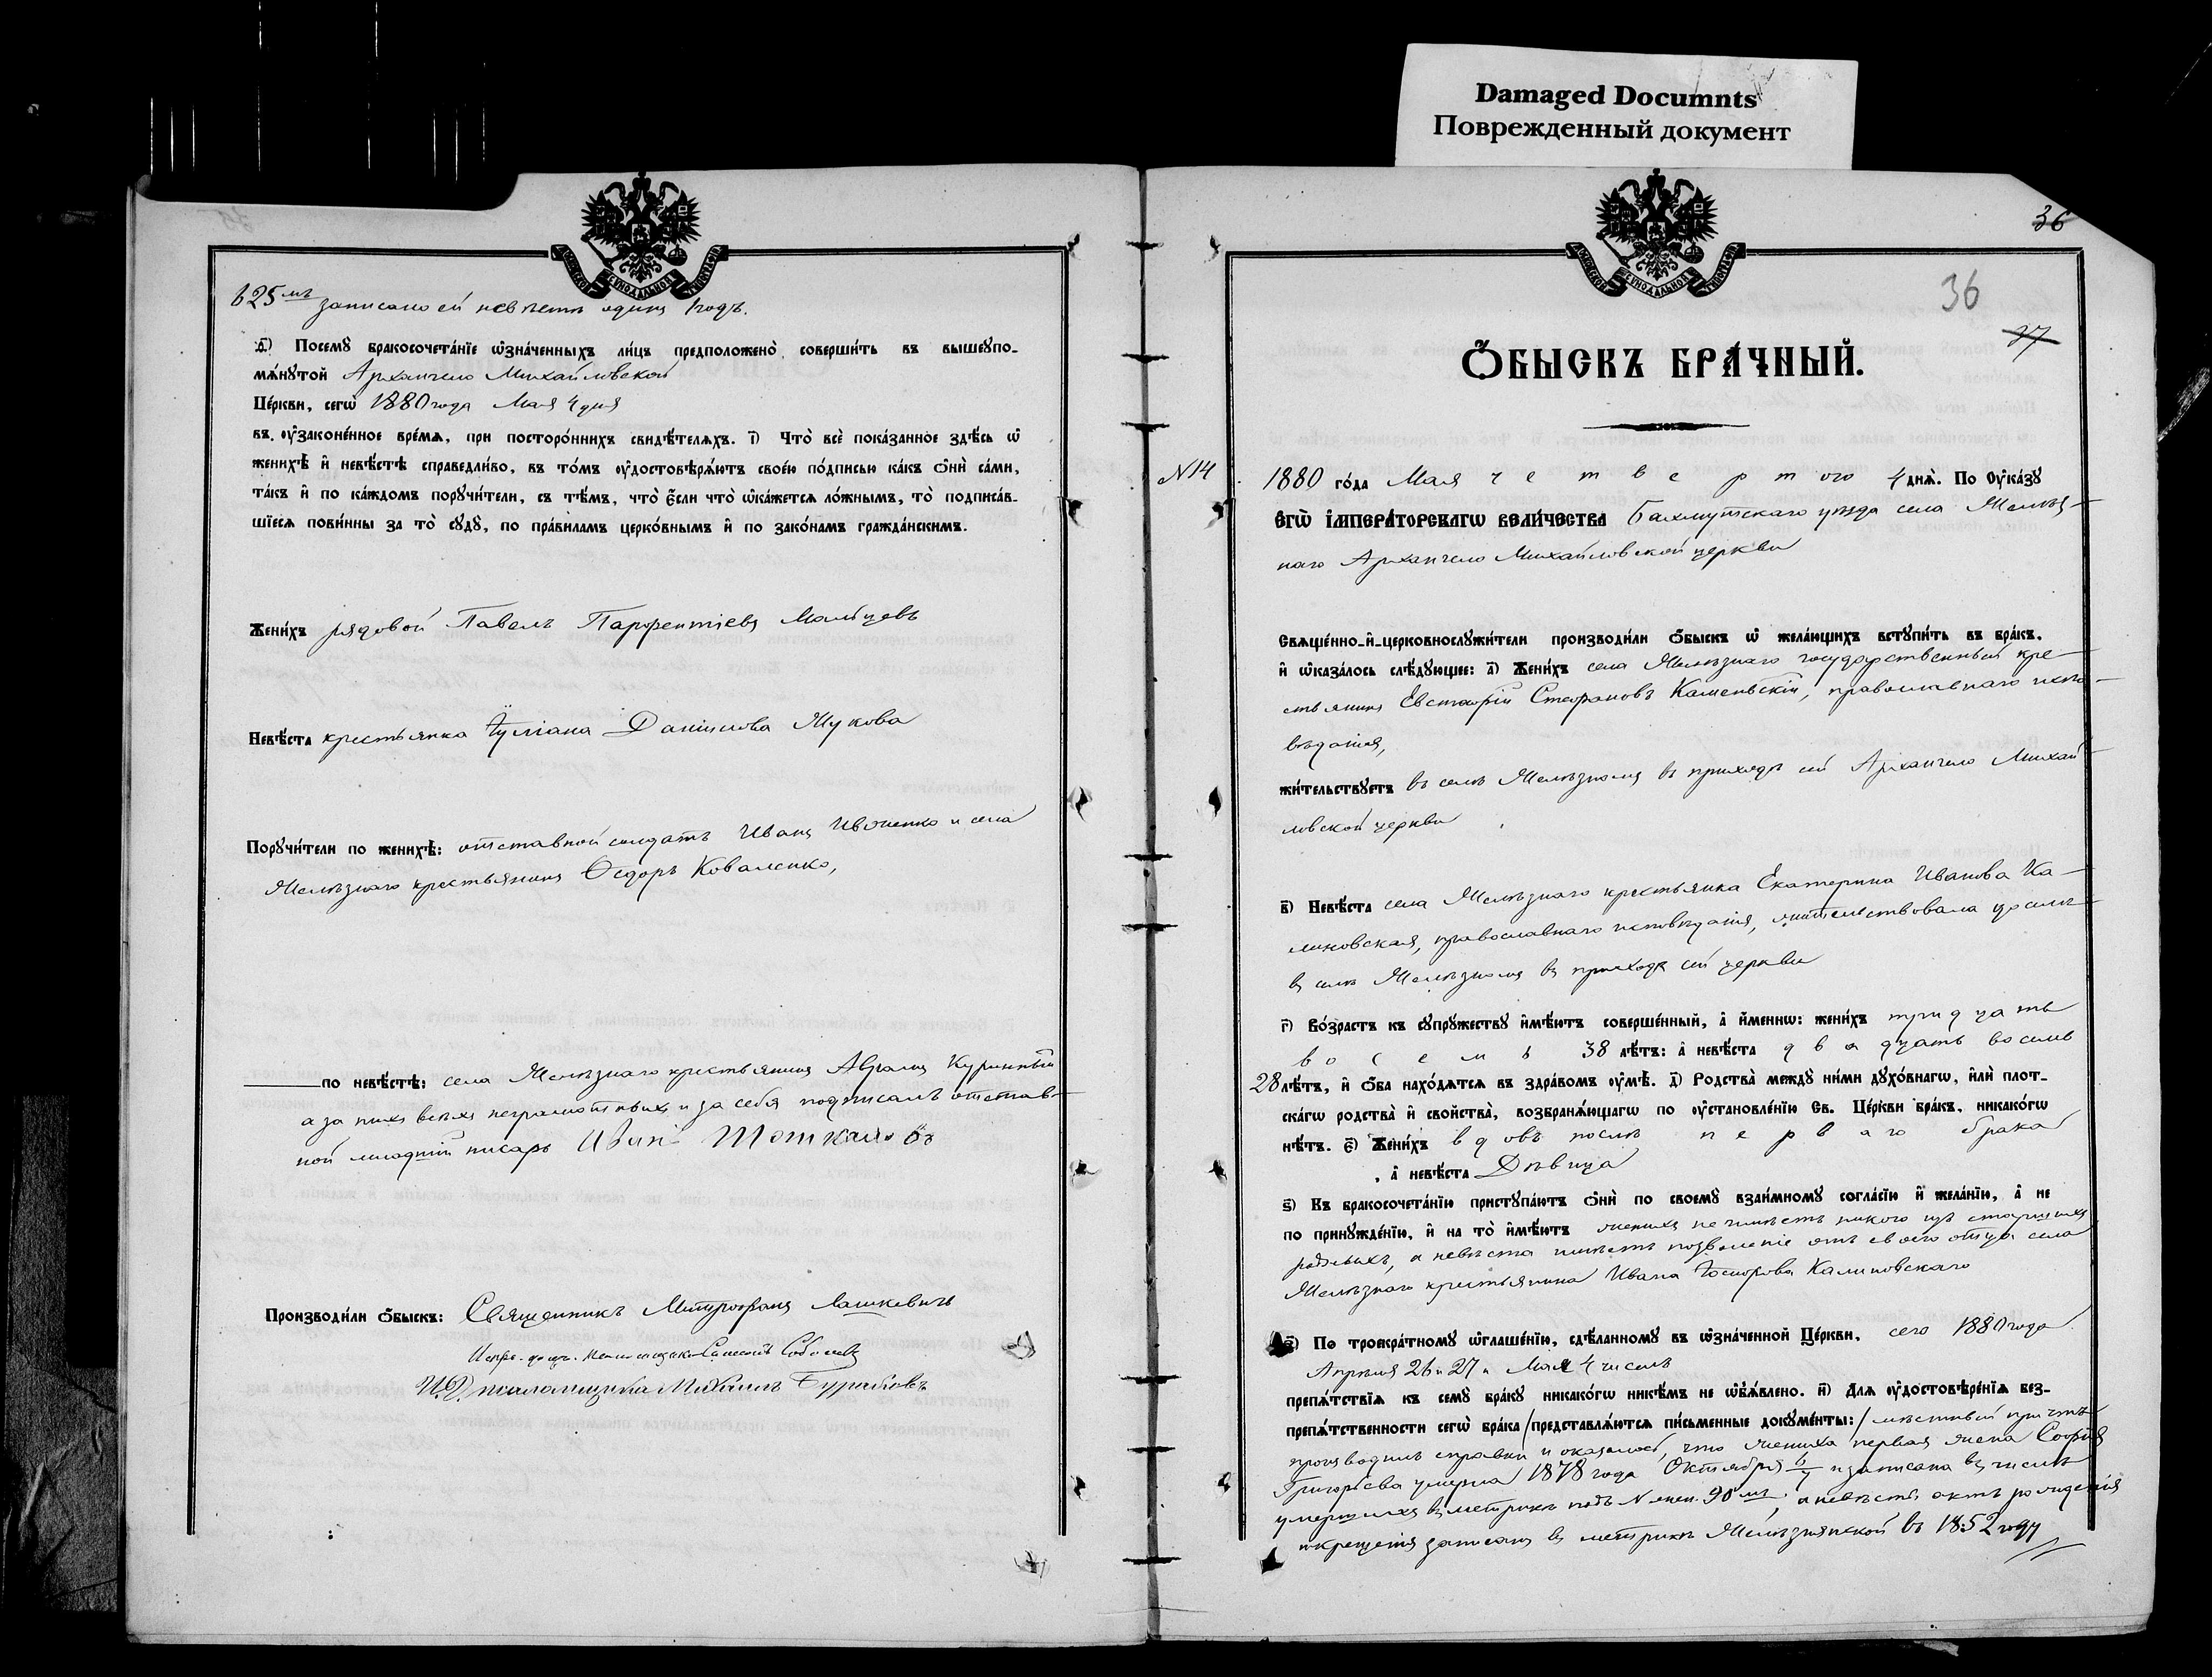 Damaged Documnts
Поврежденный документ
625мъ записано ей невѣстѣ одинъ годъ.
д҃) Посемꙋ бракосочетанїе ѡзначенныхъ лицъ предположено совершить въ вышеꙋпо-
мѧнꙋтой Архангело Михайловской
Церкви, сегѡ 1880 года Мая 4 дня
въ ꙋзаконенное времѧ, при постороннихъ свидѣтелѧхъ. і҃) Что все показанное здѣсь ѡ
женихѣ и невѣстѣ справедливо, въ томъ ꙋдостовѣрѧютъ своею подписью какъ ѻни сами,
такъ и по каждомъ порꙋчители, съ тѣмъ, что если что ѡкажетсѧ ложнымъ, то подписав-
шїесѧ повинны за то сꙋдꙋ, по правиламъ церковнымъ и по законамъ гражданскимъ.
Женихъ рядовой Павелъ Парфентіевъ Мальцевъ
Невѣста крестьянка Іуліана Даніилова Жукова
Порꙋчители по женихѣ: отставной солдатъ Иванъ Ивоненко и села
Желѣзнаго крестьянинъ Ѳедоръ Коваленко,
по невѣстѣ: села Желѣзнаго крестьянинъ Аврамъ Куринный
а за нихъ всѣхъ неграмотныхъ и за себя подписалъ отстав-
ной младшій писарь Иванъ
Производили ѻбыскъ: Священникъ Митрофанъ Лашкевичъ
Соболевъ
И.Д. псаломщика Михаилъ Бураковъ
36
36
37
ѺБЫСКЪ БРАЧНЫЙ.
N14
1880 года Мая четвертого 4 днѧ. По Ꙋказꙋ
ЕГѠ ІМПЕРАТОРСКАГѠ ВЕЛИЧЕСТВА Бахмутскаго уѣзда села Желѣз-
наго Архангело Михайловской церкви
Свѧщенно-и-церковнослꙋжители производили ѻбыскъ ѡ желающихъ встꙋпить въ бракъ,
и ѡказалось слѣдꙋющее: а҃) Женихъ села Желѣзнаго государственный кре-
стьянинъ Евстафій Стефановъ Каменьскій, православнаго испо-
вѣданія,
жительствꙋетъ въ селѣ Желѣзномъ въ приходѣ сей Архангело Михай-
ловской церкви
в҃) Невѣста села Желѣзнаго крестьянка Екатерина Иванова Ка-
линовская, православнаго исповѣданія, жительствовала доселѣ
въ селѣ Желѣзномъ въ приходѣ сей церкви
г҃) Возрастъ къ сꙋпрꙋжествꙋ имѣютъ совершенный, а именнѡ: женихъ тридцать
восемь 38 лѣтъ: а невѣста двадцать восемь
28 лѣтъ, и ѻба находѧтсѧ въ здравомъ ꙋмѣ. д҃) Родства междꙋ ними дꙋховнагѡ, или плот-
скагѡ родства и свойства, возбранѧющагѡ по ꙋстановленїю Св. Церкви бракъ, никакогѡ
нѣтъ. є҃) Женихъ вдовъ послѣ перваго брака
, а невѣста Дѣвица
ѕ҃) Къ бракосочетанїю пристꙋпаютъ ѻни по своемꙋ взаимномꙋ согласїю и желанїю, а не
по принꙋжденїю, и на то имѣютъ женихъ не имѣетъ никого изъ старшихъ
родныхъ, а невѣста имѣетъ позволеніе отъ своего отца села
Желѣзнаго крестьянина Ивана Іосифова Калиновскаго
з҃) По троекратномꙋ ѡглашенїю, сдѣланномꙋ въ ѡзначенной Церкви, сего 1880 года
Апрѣля 26 и 27 и Мая 4 числъ
препѧтствїѧ къ семꙋ бракꙋ никакогѡ никѣмъ не ѡбъѧвлено. и҃) Длѧ ꙋдостовѣренїѧ без-
препѧтственности сегѡ брака / представлѧютсѧ письменные докꙋменты: / мѣстный причтъ
производилъ справки и оказалось, что жениха первая жена Софія
Григорьева умерла 1878 года Октября 6/7 и записана въ числѣ
умершихъ въ метрикѣ подъ N жен. 90мъ, а невѣсты актъ рожденія
и крещенія записанъ въ метрикѣ Желѣзнянской въ 1852 году